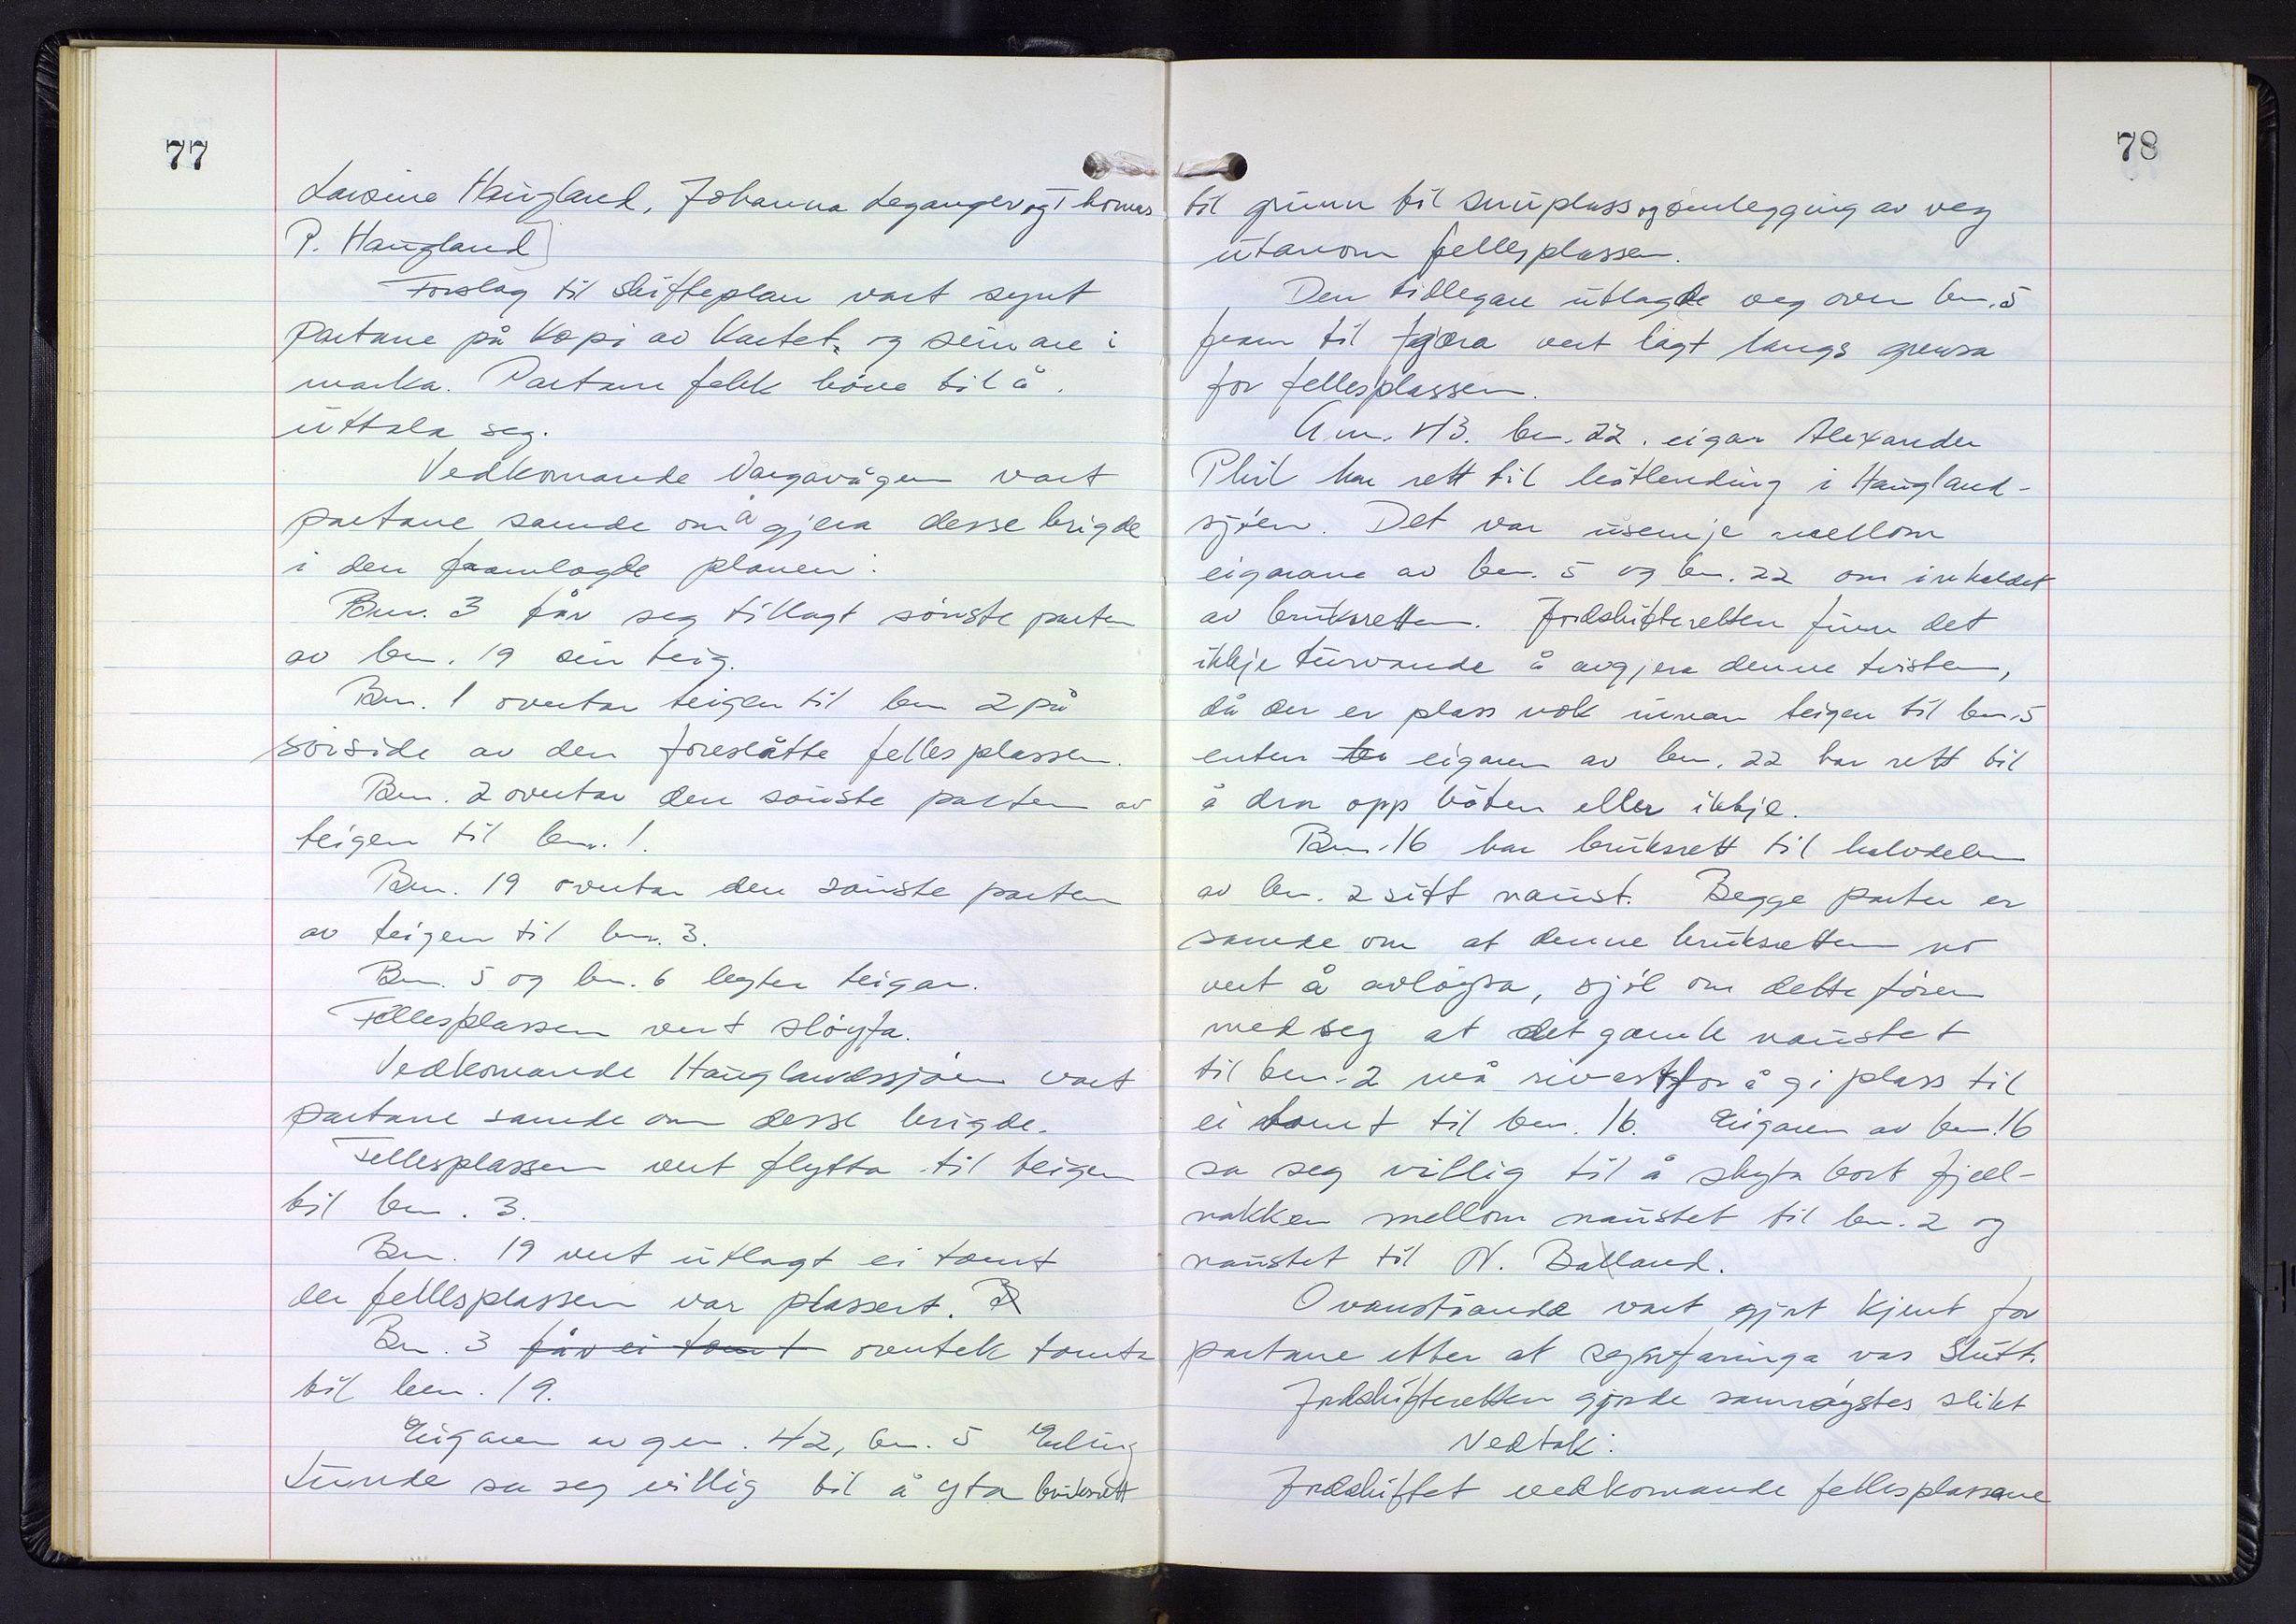 77
Larsine Haugland, Johanna Leganger og Thomas
P. Haugland]
Forslag til skifteplan vart synt
partane på kopi av kartet, og seinare i
marka. Partane fekk höve til å
uttala seg.
Vedkomande Vargavågen vart
partane samde om å gjera desse brigde
i den framlagde planen:
Bnr. 3 får seg tillagt sörste parten
av bnr. 19 sin teig.
Bnr. 1 overtar teigen til bnr 2 på
sörside av den föreslåtte fellesplassen.
Bnr. 2 overtar den sörste parten av
teigen til bnr. 1.
Bnr. 19 overtar den sörste parten
av teigen til bnr. 3.
Bnr. 5 og bnr. 6 byter teigar.
Fellesplassen vert slöyfa.
Vedkomande Hauglandssjöen vart
partane samde om desse brigde.
Fellesplassen vert flytta til teigen
til bnr. 3.
Bnr. 19 vert utlagt ei tomt
der fellesplassen var plassert. B
Bnr. 3 får ei tomt overtek tomta
til bnr. 19.
Eigaren av gnr. 42, bnr. 5 Erling
Lunde sa seg villig til å yta bruksrett
78
til grunn til snuplass og omlegging av veg
utanom fellesplassen.
Den tidlegare utlagde veg over bnr. 5
fram til fjöra vert lagt langs grensa
for fellesplassen.
Gnr. 43. bnr. 22. eigar Alexander
Phil har rett til båtlending i Haugland-
sjöen. Det var usemje mellom
eigarane av bnr. 5 og bnr. 22 om inhaldet
av bruksretten. Jordskifteretten finn det
ikkje turvande å avgjera denne tvisten,
då der er plass nok innan teigen til bnr. 5
enten eigaren av bnr. 22 har rett til
å dra opp båten eller ikkje.
Bnr. 16 har bruksrett til halvdelen
av bnr. 2 sitt naust. Begge parter er
samde om at denne bruksretten no
vert å avlöysa, sjöl om dette förer
med seg at det gamle naustet
til bnr. 2 må rivast for å gi plass til
ei tomt til bnr. 16. Eigaren av bnr. 16
sa seg villig til å skyta bort fjell-
nakken mellom naustet til bnr. 2 og
naustet til N. Balland.
Ovanståande vart gjort kjent for
partane etter at synfaringa var slutt.
Jordskifteretten gjorde samröystes slikt
Vedtak:
Jordskiftet vedkomande fellesplassane